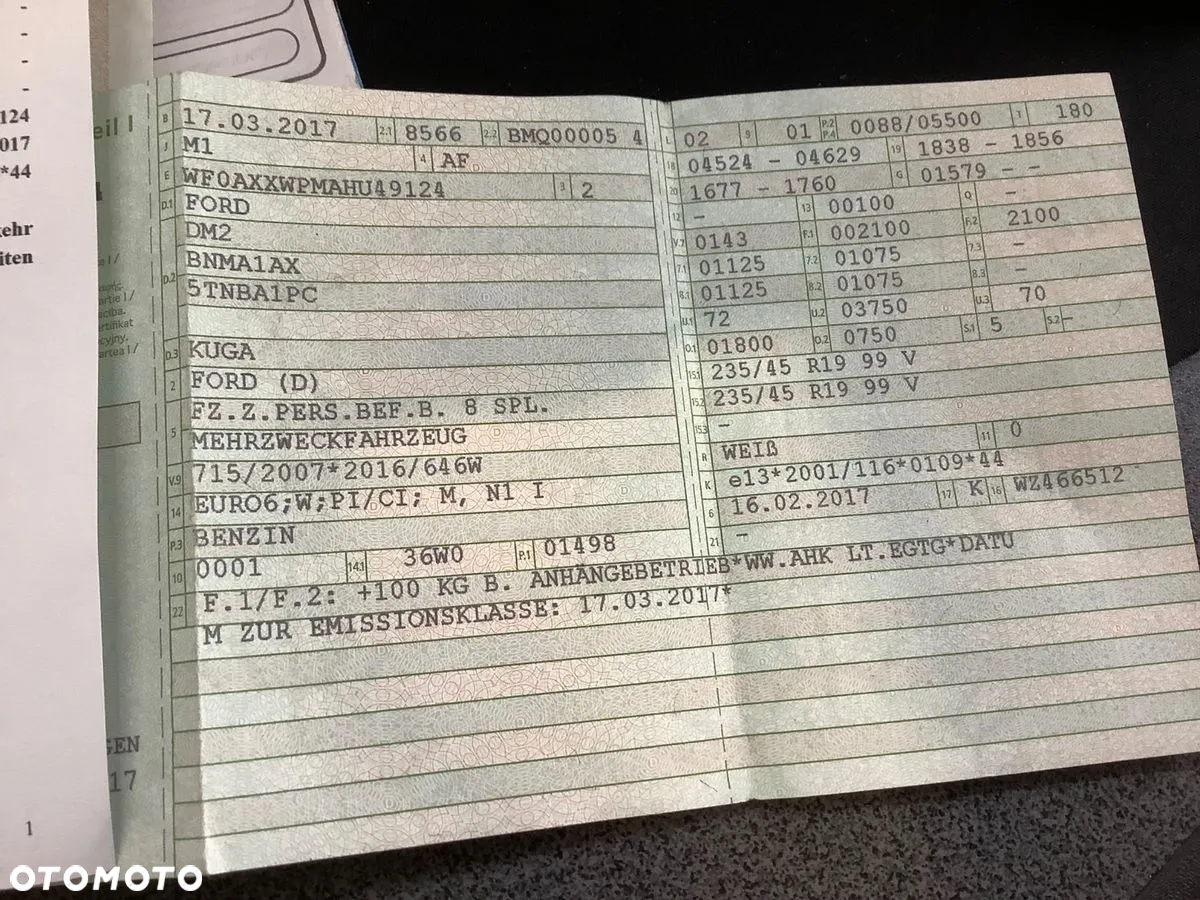 124
017
*44
kehr
iten
eil I
B 17.03.2017 2.1 8566 2.2 BMQ00005 4
J M1 4 AF
E WF0AXXWPMAHU49124 3 2
D.1 FORD
DM2
D.2 BNMA1AX
5TNBA1PC
D.3 KUGA
2 FORD (D)
FZ.Z.PERS.BEF.B. 8 SPL.
5 MEHRZWECKFAHRZEUG
V.9 715/2007*2016/646W
14 EURO6;W;PI/CI; M, N1 I
P.3 BENZIN
10 0001 14.1 36W0 P.1 01498
L 02 9 01 P.2 P.4 0088/05500 T 180
18 04524 - 04629 19 1838 - 1856
20 1677 - 1760 G 01579 - -
12 - 13 00100 Q -
V.7 0143 F.1 002100 F.2 2100
7.1 01125 7.2 01075 7.3 -
8.1 01125 8.2 01075 8.3 -
U.1 72 U.2 03750 U.3 70
O.1 01800 O.2 0750 S.1 5 S.2 -
15.1 235/45 R19 99 V
15.2 235/45 R19 99 V
15.3 -
R WEIß 11 0
K e13*2001/116*0109*44
6 16.02.2017 17 K 16 WZ466512
21 -
22 F.1/F.2: +100 KG B. ANHÄNGEBETRIEB*WW.AHK LT.EGTG*DATU
M ZUR EMISSIONSKLASSE: 17.03.2017*
GEN
17
1
OTOMOTO